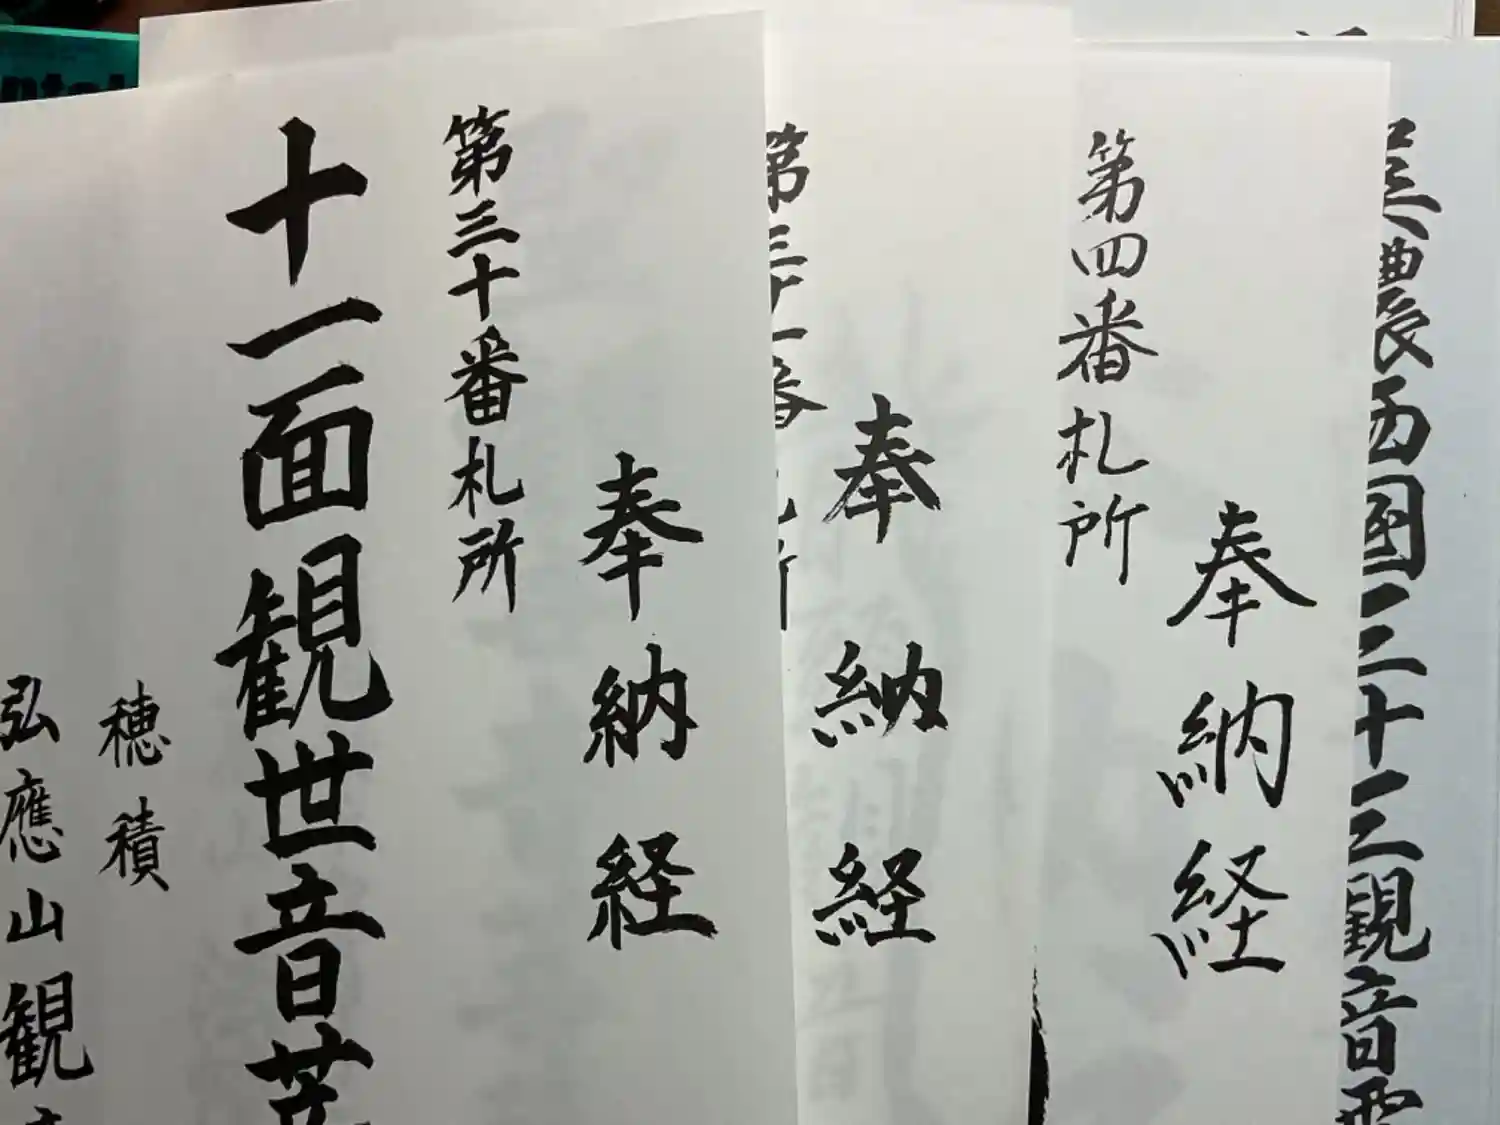 美濃西國三十三観音霊
奉納経
第四番札所
奉納経
第三十一番札所
奉納経
第三十番札所
十一面観世音菩
穂積
弘應山観音